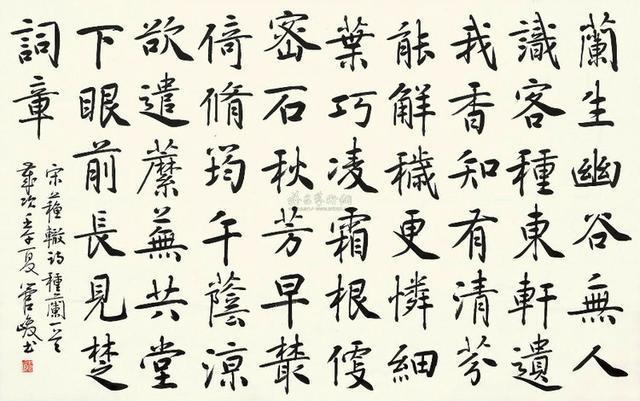 蘭生幽谷無人
識客種東軒遺
我香知有清芬
能解穢更憐細
葉巧凌霜根便
密石秋芳早叢
倚脩筠午蔭涼
欲遣蘼蕪共堂
下眼前長見楚
詞章
宋蘇轍詩種蘭一首
歲次夏管峻書